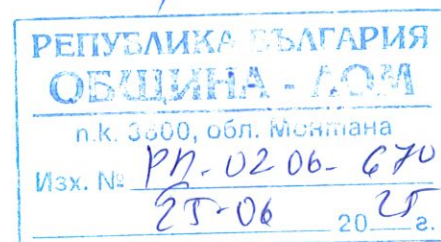 РЕПУБЛИКА БЪЛГАРИЯ
ОБЩИНА - ЛОМ
п.к. 3600, обл. Монтана
Изх. № РД-02 06- 670
25-06 2025 г.